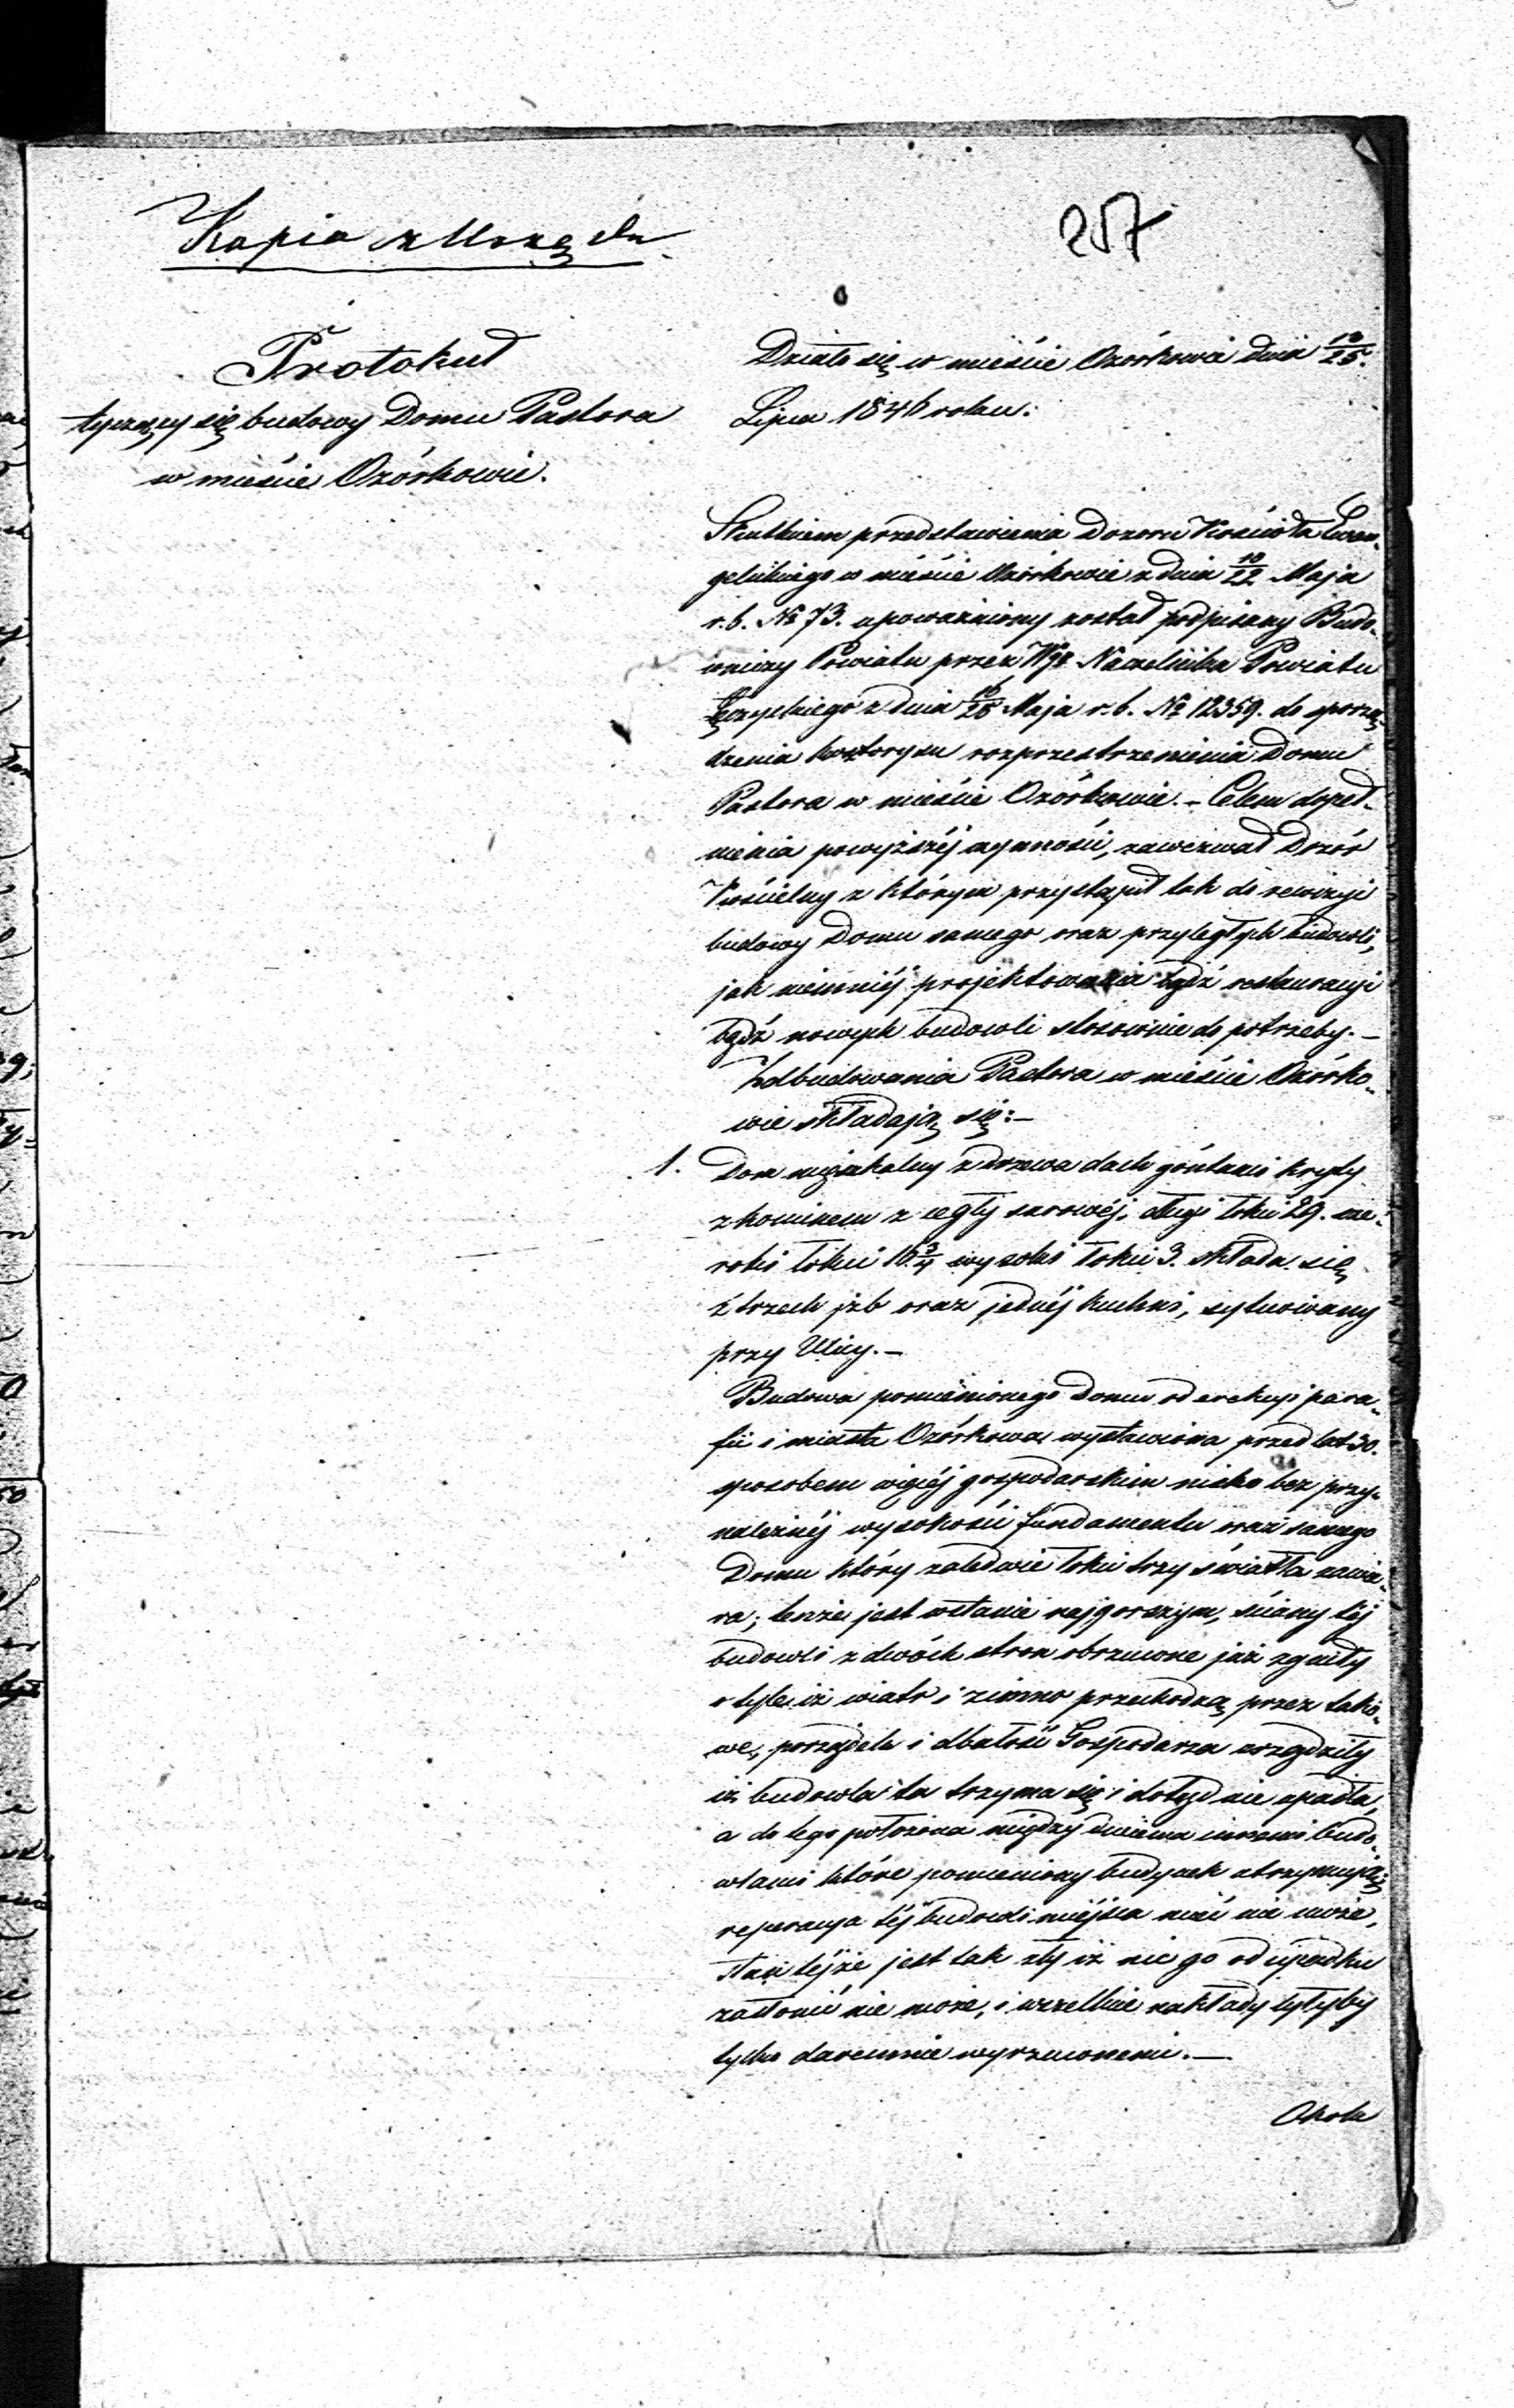 Kopia z Urzędu
257
Protokuł
tyczący się budowy Domu Pastora
w mieście Ozórkowie.
Działo się w mieście Ozórkowie dnia 13/25.
Lipca 1846 roku.
Skutkiem przedstawienia Dozoru Kościoła Ewan-
gelickiego w mieście Ozórkowie z dnia 10/22 Maja
r. b. № 73. upoważniony został podpisany Budo-
wniczy Powiatu przez Wgo Naczelnika Powiatu
Łęczyckiego z dnia 16/28 Maja r. b. № 12359. do sporzą-
dzenia kosztorysu rozprzestrzenienia Domu
Pastora w mieście Ozórkowie. – Celem dopeł-
nienia powyższéj czynności, zawezwał Dozór
Kościelny z którym przystąpił tak do rewizyi
budowy Domu samego oraz przyległych budowli,
jak niemniéj projektowania bądź restauracyi
bądź nowych budowli stosownie do potrzeby. –
Zabudowania Pastora w mieście Ozórko-
wie składają się: –
1. Dom mięszkalny z drzewa dach góntami kryty
z kominem z cegły surowéj, długi łokci 29. sze-
roki łokci 16 3/4 wysoki łokci 3. składa się
z trzech jzb oraz jednéj kuchni, sytuowany
przy Ulicy. –
Budowa pomienionego Domu od erekcyi para-
fii i miasta Ozórkowa wystawiona przed lat 30.
sposobem więcéj gospodarskim nisko bez przy-
należnéj wysokości fundamentu oraz samego
Domu który zaledwie łokci trzy światła zawie-
ra; tenże jest w stanie najgorszym, ściany téj
budowli z dwóch stron obrzucone już zgniły
o tyle iż wiatr i zimno przechodzą przez tako-
we, porządek i dbałość Gospodarza zrządziły
iż budowla ta trzyma się i dotąd nie upadła,
a do tego położona między dwiema innemi budo-
wlami które pomieniony budynek utrzymują;
reperacya téj budowli miéjsca mieć nie może,
stan téjże jest tak zły iż nic go od upadku
zasłonić nie może, i wszelkie nakłady byłyby
tylko daremnie wyrzuconemi. –
Około